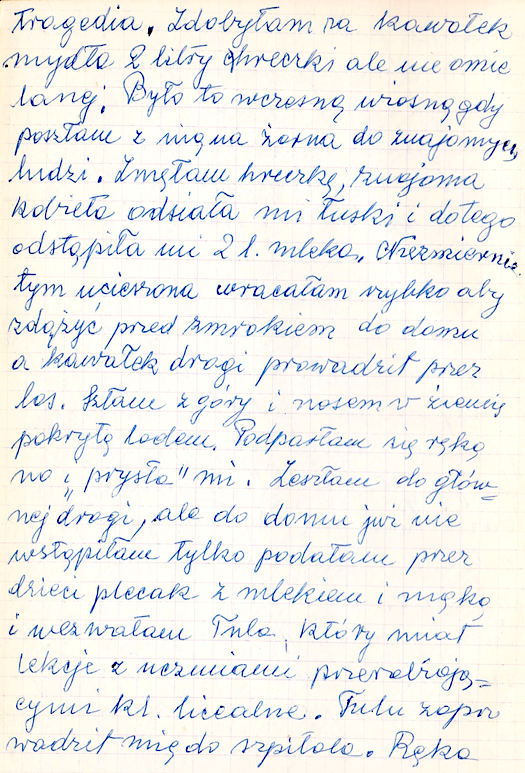 tragedia. Zdobyłam za kawałek
mydła 2 litry chreczki ale nie omie
lanej. Było to wczesną wiosną gdy
poszłam z nią na żarna do znajomych
ludzi. Zmełłam hreczkę, znajoma
kobieta odsiała mi łuski i do tego
odstąpiła mi 2 l. mleka. Niezmiernie
tym ucieszona wracałam szybko aby
zdążyć przed zmrokiem do domu
a kawałek drogi prowadził przez
las. Szłam z góry i nosem w ziemię
pokrytą lodem. Podparłam się ręką
no i „prysła" mi. Zeszłam do głów=
nej drogi, ale do domu już nie
wstąpiłam tylko podałam przez
dzieci plecak z mlekiem i mąką
i wezwałam Tula, który miał
lekcje z uczniami przerabiają=
cymi kl. licealne. Tulu zapro
wadził mię do szpitala. Ręka